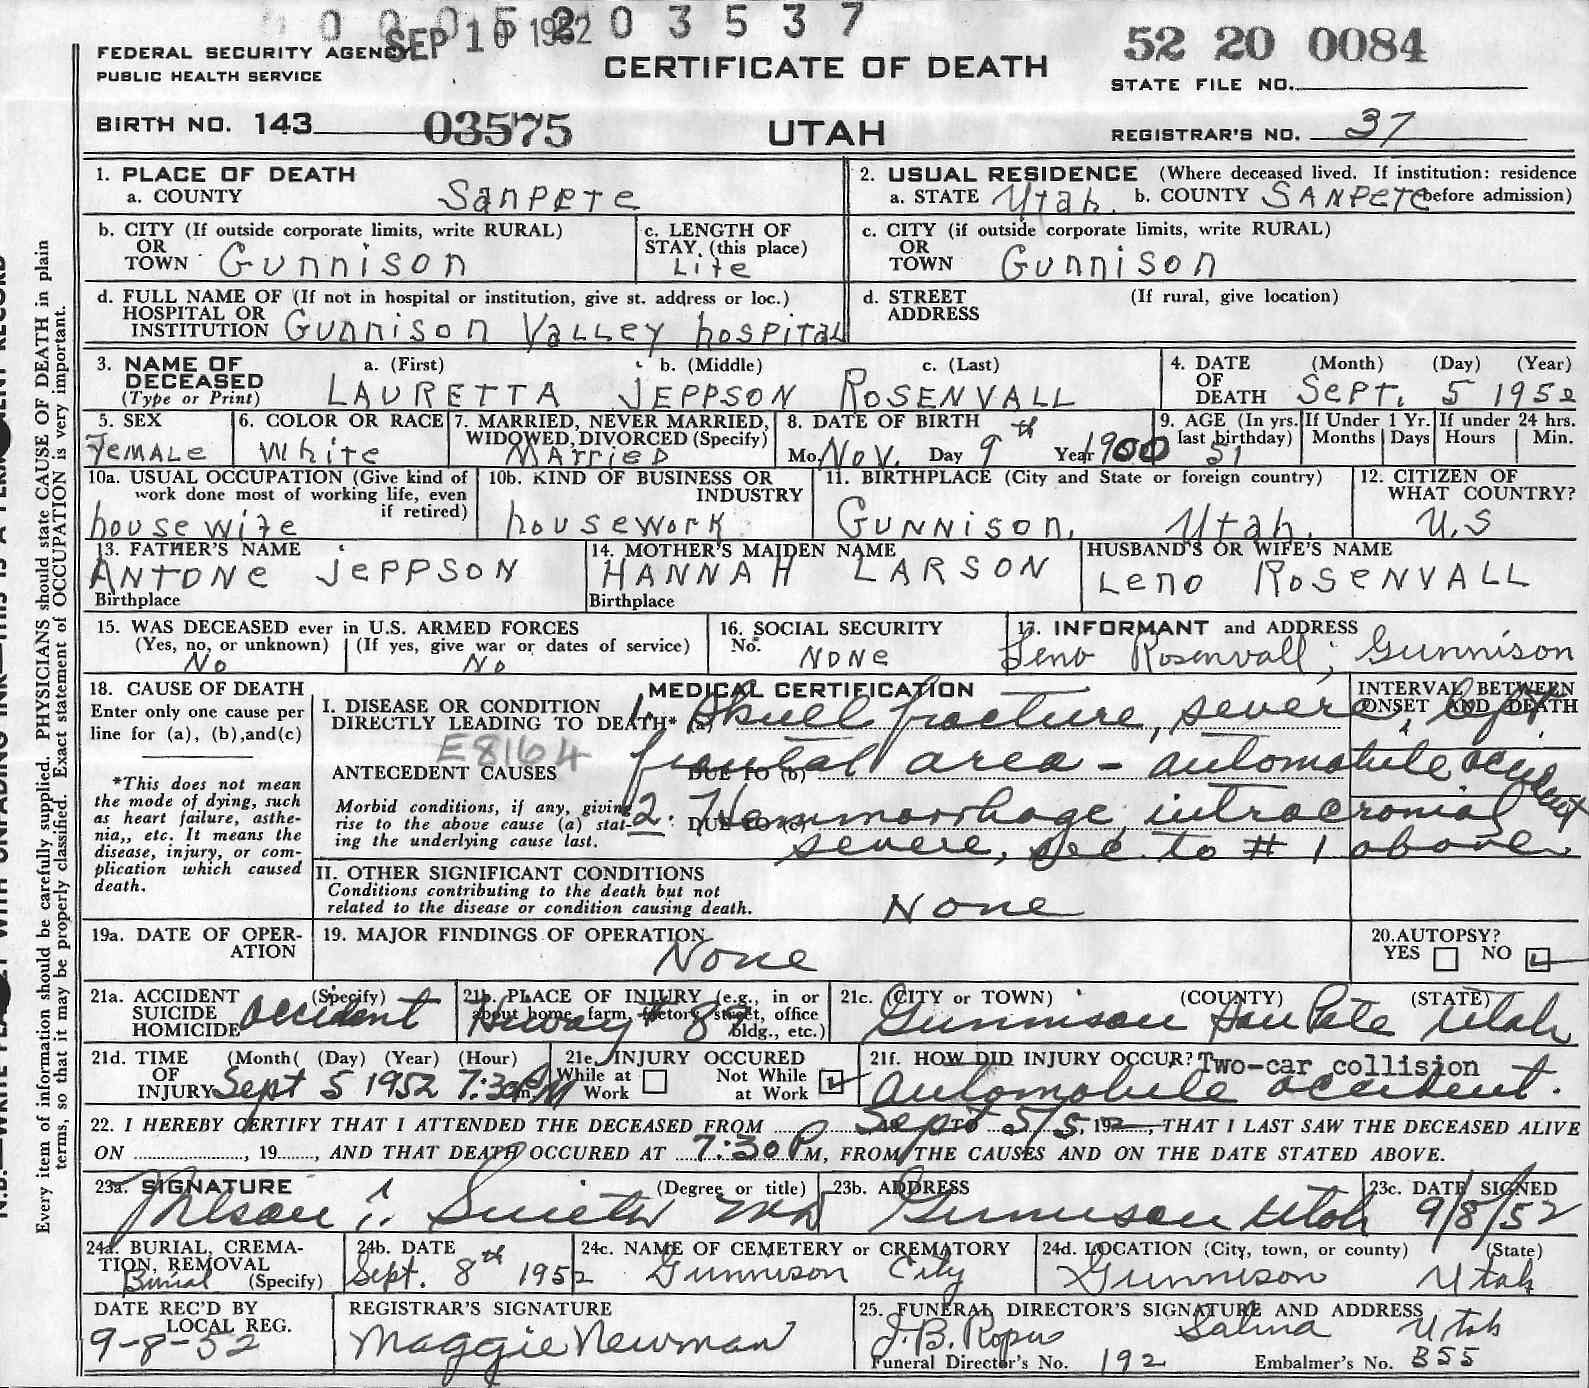 0 0 0 5 2 0 3 5 3 7
SEP 10 1952
52 20 0084
FEDERAL SECURITY AGENCY
PUBLIC HEALTH SERVICE
CERTIFICATE OF DEATH
STATE FILE NO.
BIRTH NO. 143 03575
UTAH
REGISTRAR'S NO. 37
1. PLACE OF DEATH
a. COUNTY Sanpete
2. USUAL RESIDENCE (Where deceased lived. If institution: residence before admission)
a. STATE Utah. b. COUNTY SANPETE
b. CITY (If outside corporate limits, write RURAL)
OR
TOWN Gunnison
c. LENGTH OF
STAY (this place)
Life
c. CITY (if outside corporate limits, write RURAL)
OR
TOWN Gunnison
d. FULL NAME OF (If not in hospital or institution, give st. address or loc.)
HOSPITAL OR
INSTITUTION Gunnison Valley hospital
d. STREET (If rural, give location)
ADDRESS
3. NAME OF DECEASED
(Type or Print)
a. (First) b. (Middle) c. (Last)
LAURETTA JEPPSON ROSENVALL
4. DATE OF DEATH (Month) (Day) (Year)
Sept. 5 1952
5. SEX
Female
6. COLOR OR RACE
White
7. MARRIED, NEVER MARRIED,
WIDOWED, DIVORCED (Specify)
Married
8. DATE OF BIRTH
Mo. Nov. Day 9th Year 1900
9. AGE (In yrs. last birthday)
51
If Under 1 Yr.
Months Days
If under 24 hrs.
Hours Min.
10a. USUAL OCCUPATION (Give kind of
work done most of working life, even
if retired)
housewife
10b. KIND OF BUSINESS OR
INDUSTRY
housework
11. BIRTHPLACE (City and State or foreign country)
Gunnison, Utah.
12. CITIZEN OF
WHAT COUNTRY?
U.S
13. FATHER'S NAME
Antone Jeppson
Birthplace
14. MOTHER'S MAIDEN NAME
HANNAH LARSON
Birthplace
HUSBAND'S OR WIFE'S NAME
Leno Rosenvall
15. WAS DECEASED ever in U.S. ARMED FORCES
(Yes, no, or unknown) (If yes, give war or dates of service)
No No
16. SOCIAL SECURITY
No.
None
17. INFORMANT and ADDRESS
Leno Rosenvall; Gunnison
18. CAUSE OF DEATH
Enter only one cause per
line for (a), (b), and (c)
*This does not mean
the mode of dying, such
as heart failure, asthe-
nia,, etc. It means the
disease, injury, or com-
plication which caused
death.
MEDICAL CERTIFICATION
INTERVAL BETWEEN
ONSET AND DEATH
I. DISEASE OR CONDITION
DIRECTLY LEADING TO DEATH* (a)
1. Skull fracture, severe, left
E8164
ANTECEDENT CAUSES DUE TO (b)
frontal area - automobile accident
Morbid conditions, if any, giving
rise to the above cause (a) stat-
ing the underlying cause last.
DUE TO (c)
2. Hemmorrhage, intracranial
severe, sec. to # 1 above
II. OTHER SIGNIFICANT CONDITIONS
Conditions contributing to the death but not
related to the disease or condition causing death.
None
19a. DATE OF OPER-
ATION
19. MAJOR FINDINGS OF OPERATION
None
20. AUTOPSY?
YES NO
21a. ACCIDENT (Specify)
SUICIDE
HOMICIDE
accident
21b. PLACE OF INJURY (e.g., in or
about home, farm, factory, street, office
bldg., etc.)
Hiway # 89
21c. (CITY or TOWN) (COUNTY) (STATE)
Gunnison SanPete Utah
21d. TIME (Month( (Day) (Year) (Hour)
OF
INJURY Sept 5 1952 7:30 PM
21e. INJURY OCCURED
While at Work
Not While at Work
21f. HOW DID INJURY OCCUR? Two-car collision
automobile accident.
22. I HEREBY CERTIFY THAT I ATTENDED THE DECEASED FROM Sept TO 5/5, 19 , THAT I LAST SAW THE DECEASED ALIVE
ON , 19 , AND THAT DEATH OCCURED AT 7:30 P M, FROM THE CAUSES AND ON THE DATE STATED ABOVE.
23a. SIGNATURE (Degree or title)
23b. ADDRESS
Gunnison Utah
23c. DATE SIGNED
9/8/52
24a. BURIAL, CREMA-
TION, REMOVAL
(Specify)
Burial
24b. DATE
Sept. 8th 1952
24c. NAME OF CEMETERY or CREMATORY
Gunnison City
24d. LOCATION (City, town, or county) (State)
Gunnison Utah
DATE REC'D BY
LOCAL REG.
9-8-52
REGISTRAR'S SIGNATURE
Maggie Newman
25. FUNERAL DIRECTOR'S SIGNATURE AND ADDRESS
J.B. Salina Utah
Funeral Director's No. 192 Embalmer's No. 355
Every item of information should be carefully supplied. PHYSICIANS should state CAUSE OF DEATH in plain
terms, so that it may be properly classified. Exact statement of OCCUPATION is very important.